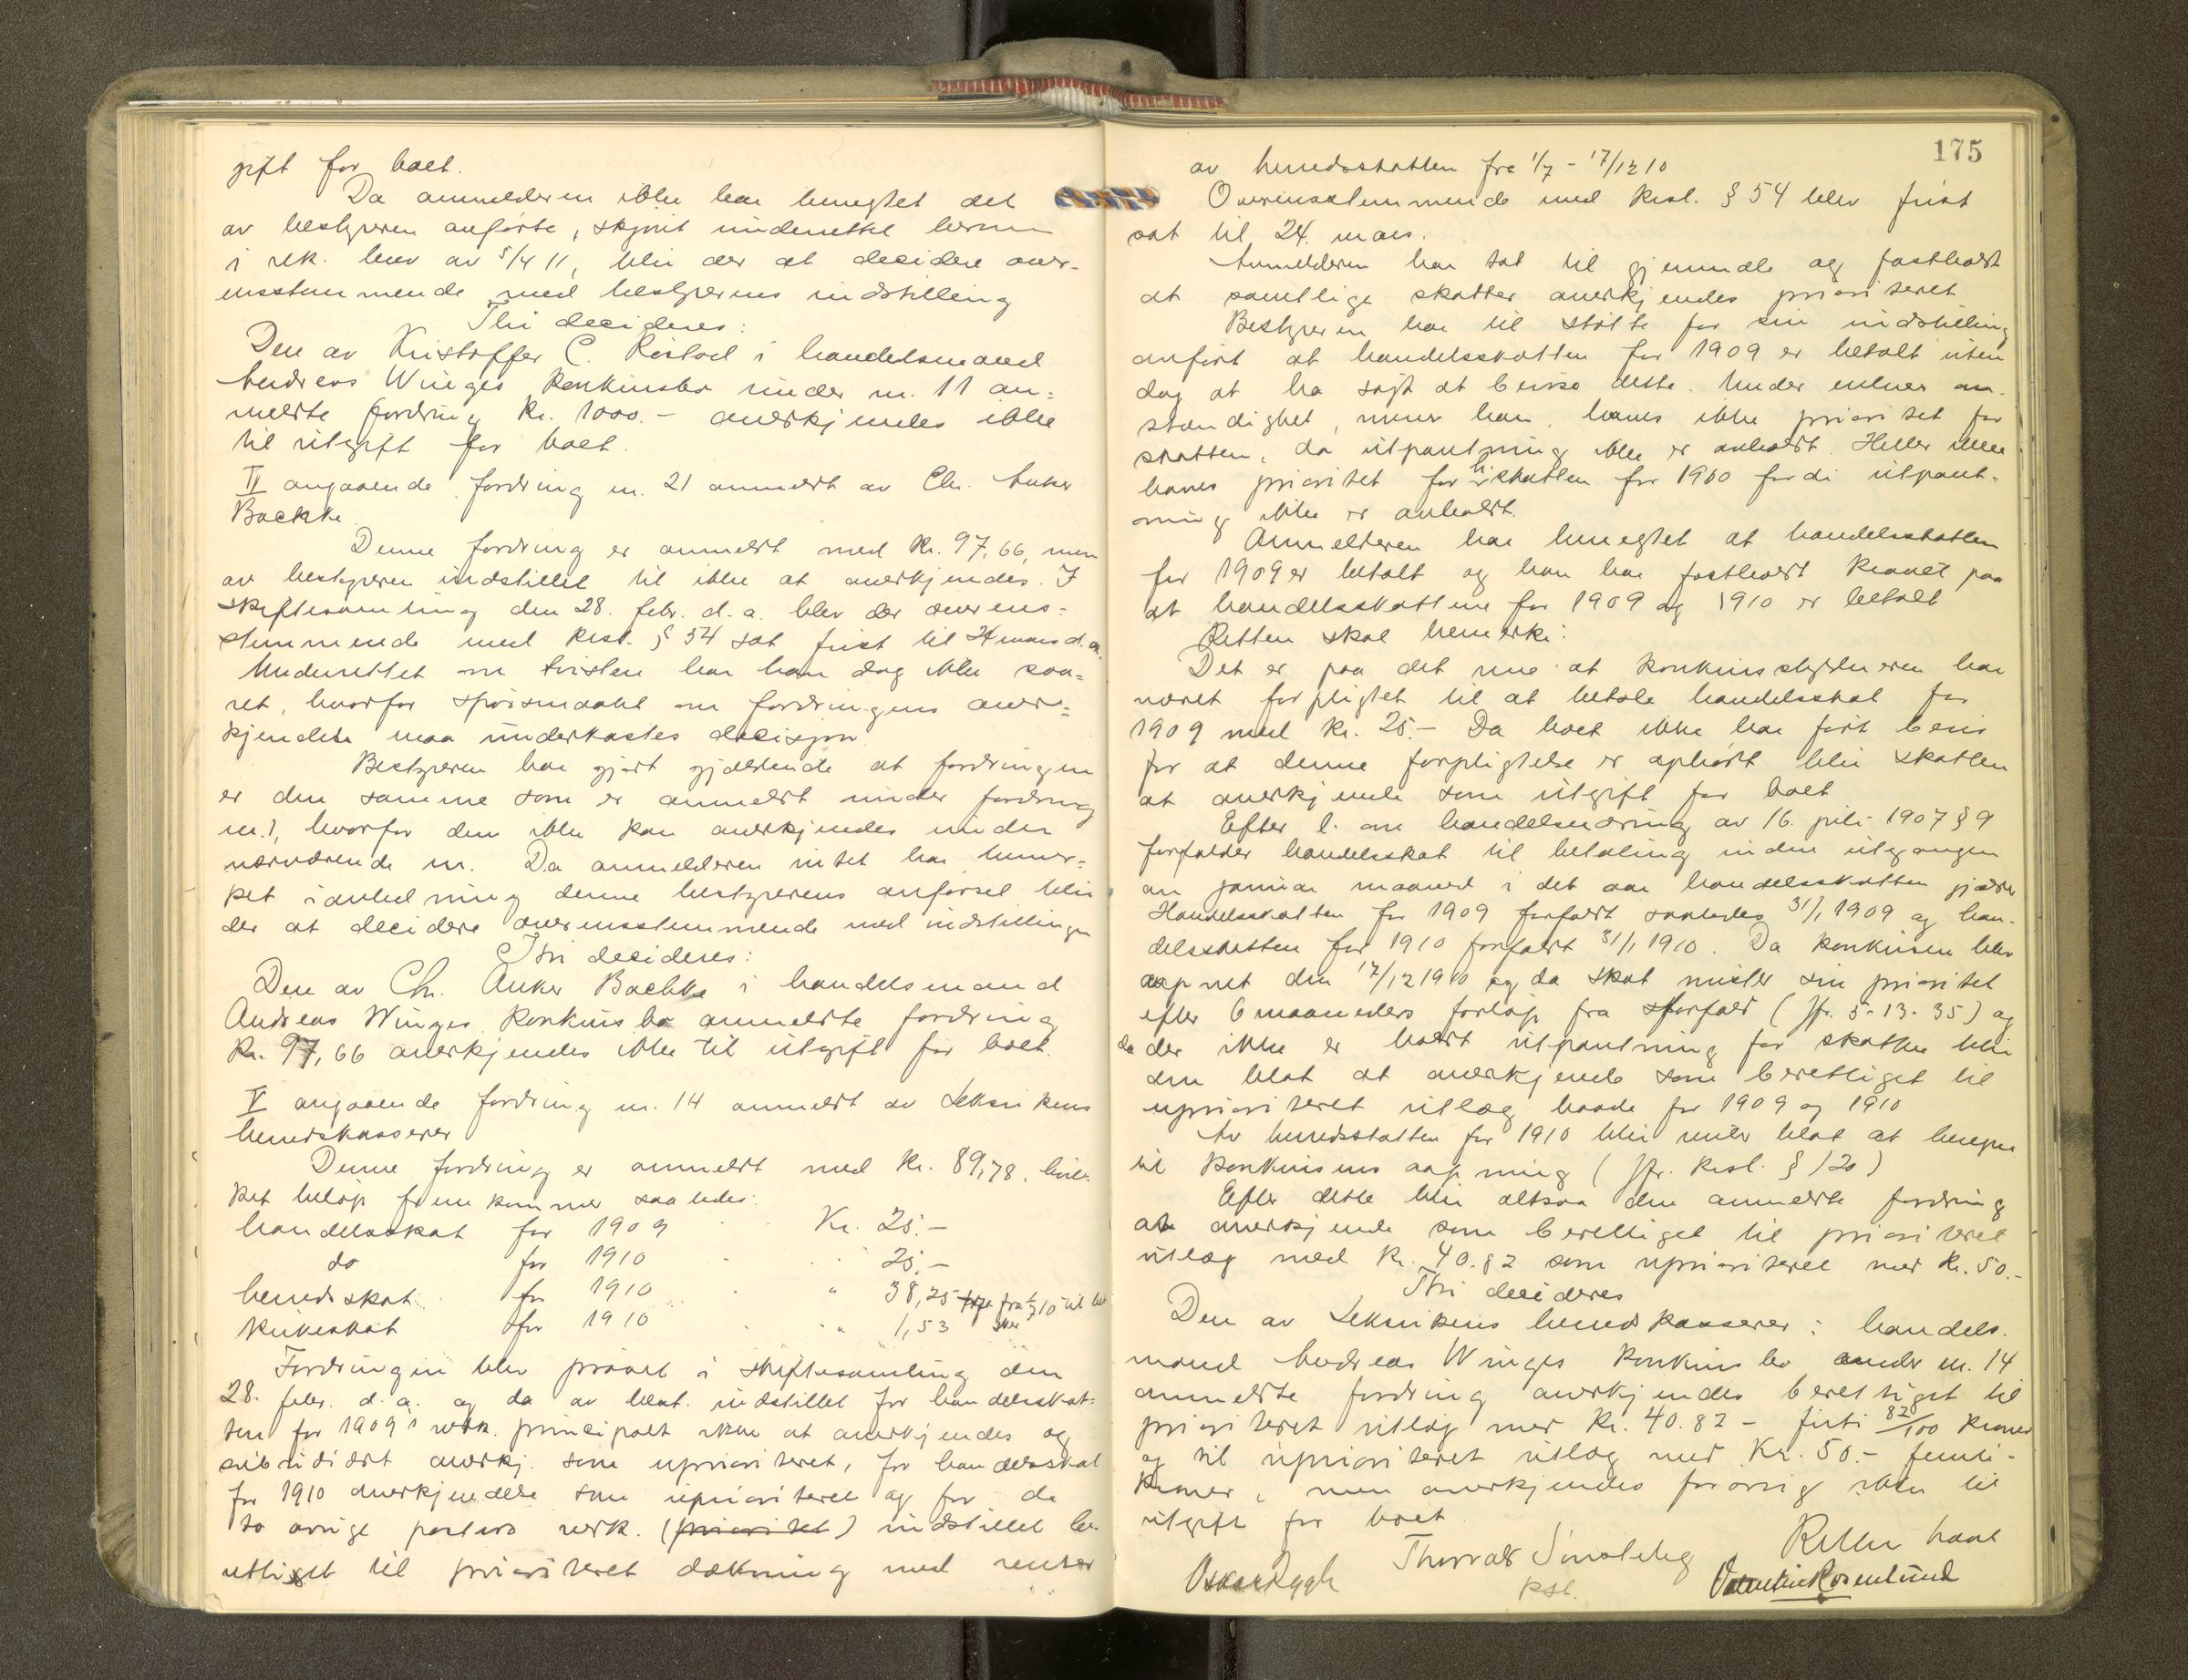 gift for boet.
Da anmelderen ikke har benegtet det
av bestyreren anførte, skjønt underrettet herom
i rek. brev av 5/4 11, blir der at decidere over-
ensstemmende med bestyrerens indstilling
Thi decideres:
Den av Kristoffer C. Röstad i handelsmand
Andreas Winges konkursbo under nr. 11 an-
meldte fordring kr. 1000.- anerkjendes ikke
til utgift for boet.
angaaende fordring nr. 21 anmeldt av Chr. Anker
Backke
Denne fordring er anmeldt med kr. 97,66, men
av bestyreren indstillet til ikke at anerkjendes. I
skiftesamling den 28. febr. d.a. blev der overens-
stemmende med ksl. § 54 sat frist til mars d.a.
Underrettet om tvisten har han dog ikke sva-
ret, hvorfor spørsmaalet om fordringens aner-
kjendelse maa underkastes decisjon.
Bestyreren har gjort gjældende at fordringen
er den samme som er anmeldt under fordring
nr. 1, hvorfor den ikke kan anerkjendes under
nærværende nr. Da anmelderen intet har bemer-
ket i anledning denne bestyrerens anførsel blir
der at decidere overensstemmende med indstillingen
Thi decideres:
Den av Chr. Anker Backke i handelsmand
Andreas Winges konkursbo anmeldte fordring
kr. 97,66 anerkjendes ikke til utgift for boet.
V angaaende fordring nr. 14 anmeldt av Leksvikens
herredskasserer
Denne fordring er anmeldt med kr. 89,78, hvil-
ket beløp fremkommer saaledes:
handelsskat for 1909 Kr. 25.-
do for 1910 " 25.-
herredsskat for 1910 " 38,25 fra 1/7 10 til bet
kirkeskat for 1910 " 1,53 sker
Fordringen blev prøvet i skiftesamling den
28. febr. d.a. og da av best. indstillet for handelsskat-
ten for 1909's vedk. principalt ikke at anerkjendes og
subsidiært anerkj. som uprioriteret, for handelsskat
for 1910 anerkjendelse som uprioriteret og for de
to øvrige posters vedk. (prioritet) indstillet be-
rettiget til prioriteret dækning med renter
175
av herredsskatten fra 1/7 - 17/12 10
Overensstemmende med ksl. § 54 blev frist
sat til 24. mars.
Anmelderen har tat til gjenmæle og fastholdt
at samtlige skatter anerkjendes prioriteret
Bestyreren har til støtte for sin indstilling
anført at handelsskatten for 1909 er betalt uten
dog at ha søgt at bevise dette. Under enhver om-
stændighet, mener han, haves ikke prioritet for
skatten, da utpantning ikke er avholdt. Heller ikke
haves prioritet for h.skatten for 1910 fordi utpant-
ning ikke er avholdt.
Anmelderen har benegtet at handelsskatten
for 1909 er betalt og han har fastholdt kravet paa
at handelsskattene for 1909 og 1910 er betalt
Retten skal bemerke:
Det er paa det rene at konkursskyldneren har
været forpligtet til at betale handelsskat for
1909 med kr. 25.- Da boet ikke har ført bevis
for at denne forpligtelse er ophørt blir skatten
at anerkjende som utgift for boet
Efter l. om handelsnæring av 16. juli 1907 § 9
forfalder handelsskat til betaling inden utgangen
av januar maaned i det aar handelsskatten gjælder
Handelsskatten for 1909 forfaldt saaledes 31/1 1909 og han-
delsskatten for 1910 forfaldt 31/1 1910. Da konkursen blev
aapnet den 17/12 1910 og da skat mister sin prioritet
efter 6 maaneders forløp fra forfald (jfr. 5-13-35) og
da der ikke er holdt utpantning for skatten blir
den blot at anerkjende som berettiget til
uprioriteret utlæg baade for 1909 og 1910
Av herredsskatten for 1910 blir renter blot at beregne
til konkursens aapning (jfr. ksl. § 120)
Efter dette blir altsaa den anmeldte fordring
at anerkjende som berettiget til prioriteret
utlæg med kr. 40.82 som uprioriteret med kr. 50.-
Thi decideres
Den av Leksvikens herredskasserer i handels-
mand Andreas Winges konkursbo under nr. 14
anmeldte fordring anerkjendes berettiget til
prioriteret utlæg med kr. 40.82 - firti 82/100 kroner
og til uprioriteret utlæg med Kr. 50.- femti-
kroner, men anerkjendes forøvrig ikke til
utgift for boet.
Retten hævet
Thorvald
kst.
Oskar Rygh
Valentin Rosenlund